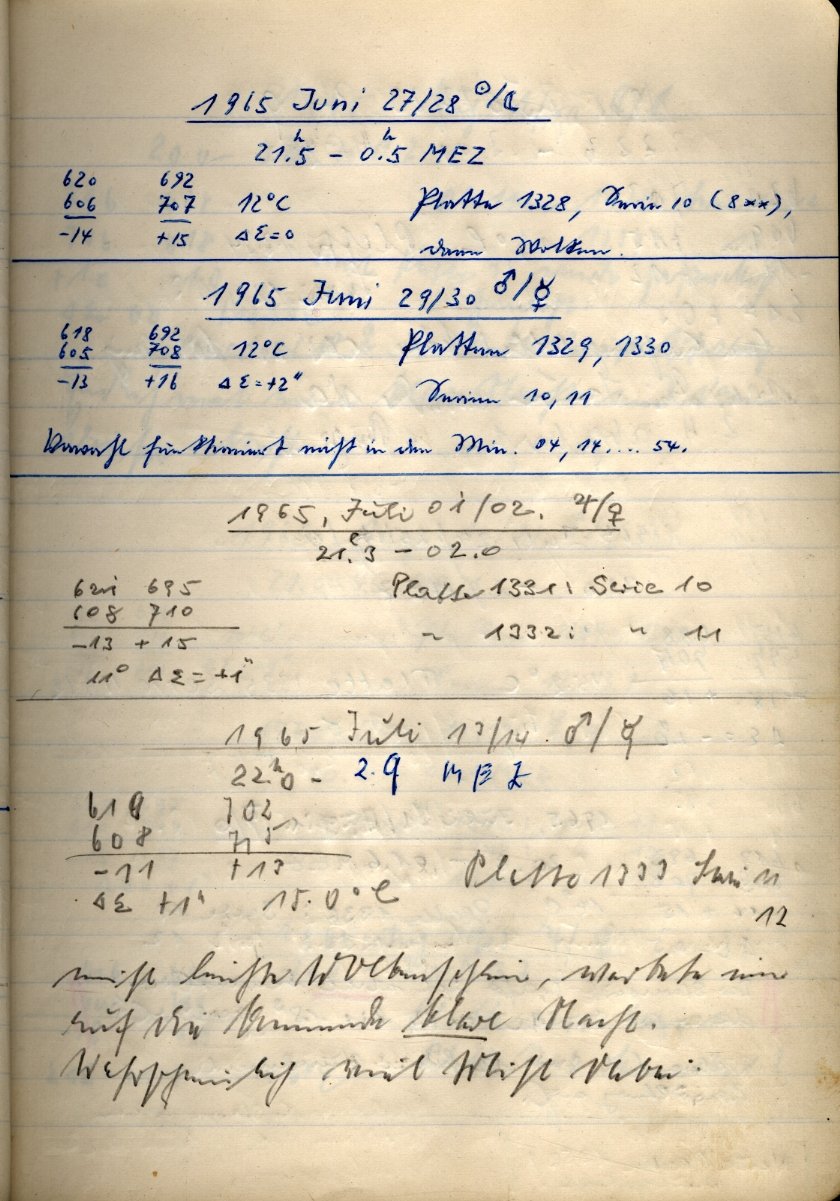 1965 Juni 27/28 ☉/☾
21.5ʰ – 0.5ʰ MEZ
620 692
606 707 12°C Platte 1328, Serie 10 (8xx),
-14 +15 ΔΣ=0 dann Wolken.
1965 Juni 29/30 ♂/☿
618 692
605 708 12°C Platten 1329, 1330
-13 +16 ΔΣ=+2"
Serien 10, 11
Vorwahl funktioniert nicht in den Min. 04, 14... 54.
1965, Juli 01/02. ♃/♀
21.3 – 02.0
621 695 Platte 1331: Serie 10
608 710
-13 +15 " 1332: " 11
11° ΔΣ=+1"
1965 Juli 13/14. ♂/☿
22.ʰ0 – 2.9 MEZ
619 702
608 715
-11 +13 Platte 1333 Serie 11
ΔΣ +1" 15.0°C 12
meist leichte Wolkenschleier, wartete
auf die kommende klare Nacht.
Wahrscheinlich viel Mist dabei.